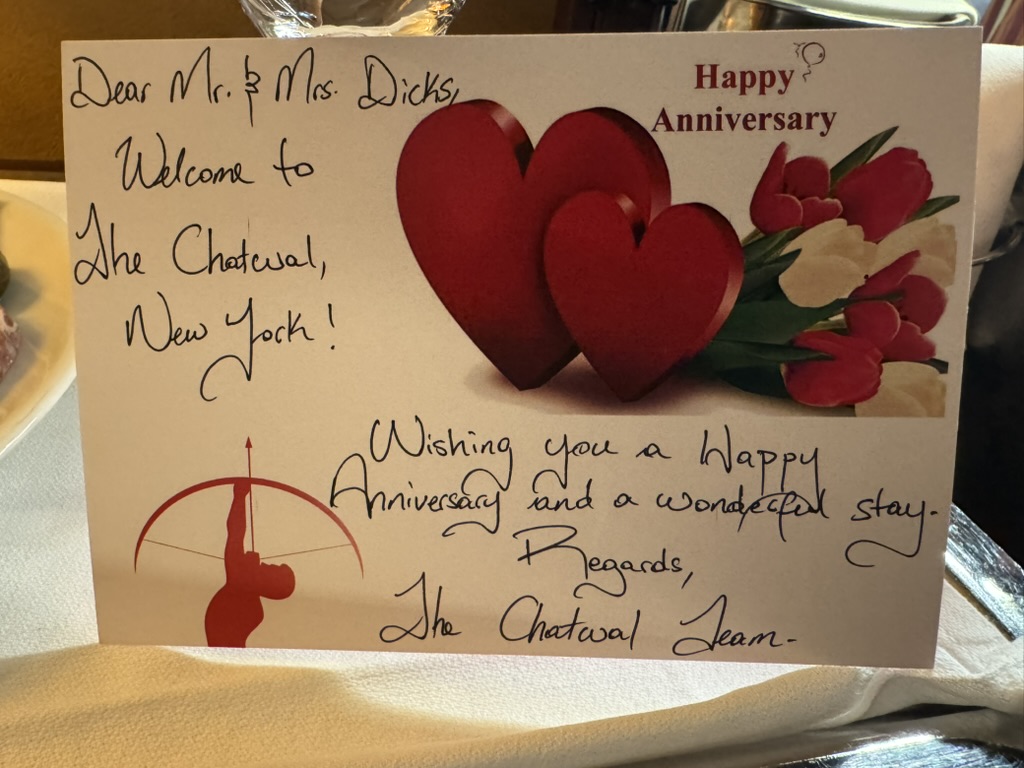 Dear Mr. & Mrs. Dicks,
Welcome to
The Chatwal,
New York!
Happy
Anniversary
Wishing you a Happy
Anniversary and a wonderful stay.
Regards,
The Chatwal Team-